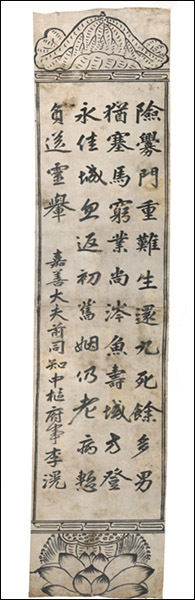 險釁門重難生還九死餘多男
猶塞馬窮業尚涔魚壽域方登
永佳城忽返初舊姻仍老病慙
負送靈轝
嘉善大夫前同知中樞府事李滉